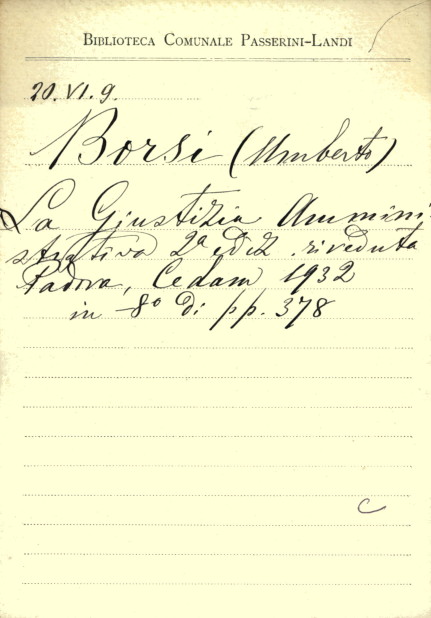 BIBLIOTECA COMUNALE PASSERINI-LANDI
20.VI.9.
Borsi (Umberto)
La Giustizia Ammini-
strativa 2ª ediz. riveduta
Padova, Cedam 1932
in -8º di pp. 378
C